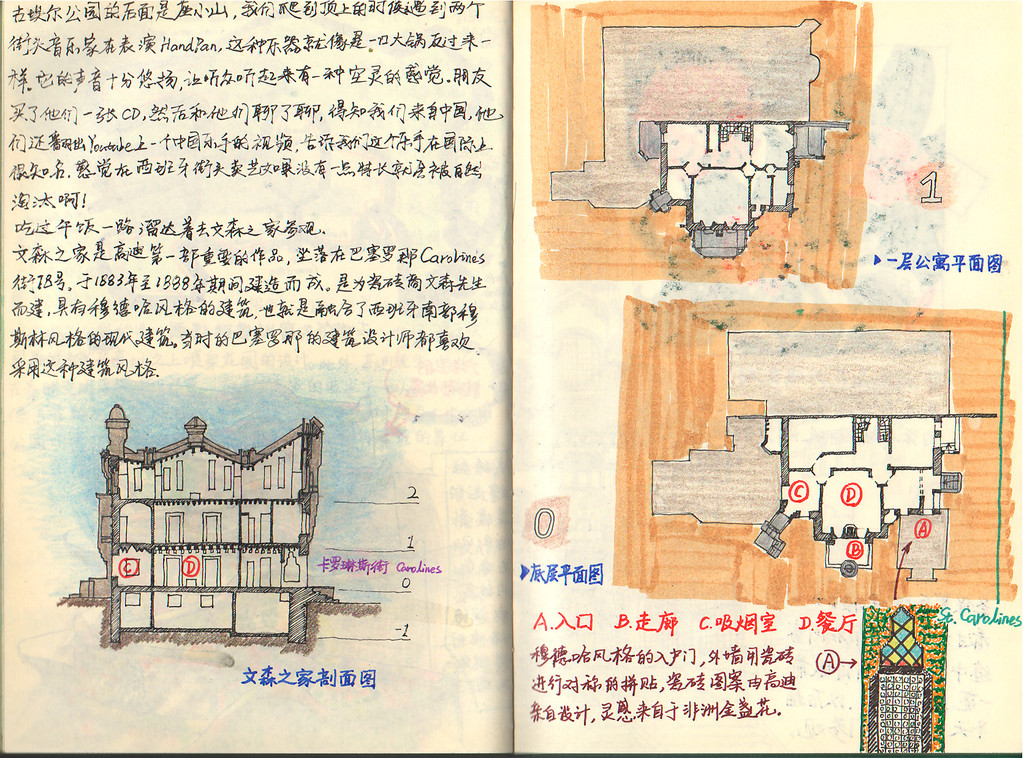 古埃尔公园的后面是座小山，我们爬到顶上的时候遇到两个
街头音乐家在表演HandPan，这种乐器就像是一口大锅反过来一
样。它的声音十分悠扬，让听众听起来有一种空灵的感觉。朋友
买了他们一张CD，然后和他们聊了聊，得知我们来自中国，他
们还翻出Youtube上一个中国乐手的视频，告诉我们这个乐手在国际上
很知名，感觉在西班牙街头卖艺如果没有一点特长就会被自然
淘汰啊！
吃过午饭一路溜达着去文森之家参观。
文森之家是高迪第一部重要的作品，坐落在巴塞罗那Carolines
街18号。于1883年至1888年期间建造而成。是为瓷砖商文森先生
而建，具有穆德哈风格的建筑，也就是融合了西班牙南部穆
斯林风格的现代建筑。当时的巴塞罗那的建筑设计师都喜欢
采用这种建筑风格.
2
1
卡罗琳斯街 Carolines
0
-1
C
D
文森之家剖面图
1
一层公寓平面图
0
C
D
B
A
底层平面图
A.入口 B.走廊 C.吸烟室 D.餐厅
St. Carolines
穆德哈风格的入户门，外墙用瓷砖
进行对称的拼贴，瓷砖图案由高迪
亲自设计，灵感来自于非洲金盏花.
A